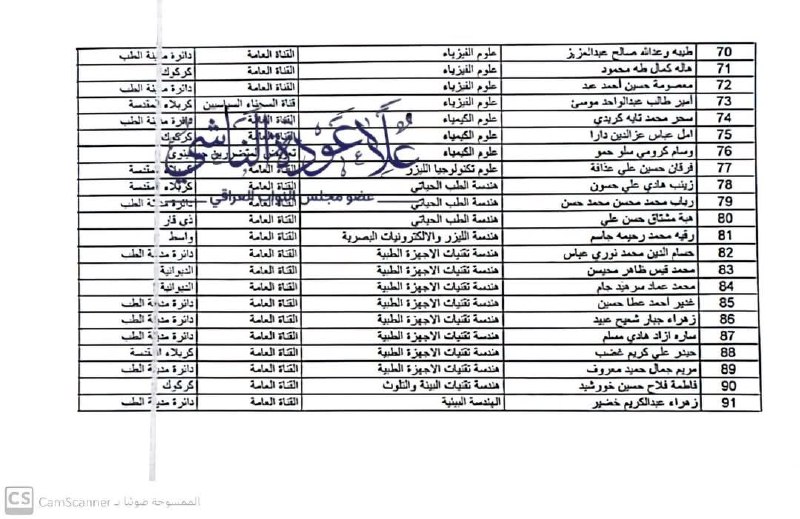 70 طيبه وعدالله صالح عبدالعزيز علوم الفيزياء القناة العامة دائرة مدينة الطب
71 هاله كمال طه محمود علوم الفيزياء القناة العامة كركوك
72 معصومة حسين أحمد علوم الفيزياء القناة العامة دائرة مدينة الطب
73 أمير طالب عبدالواحد موسى علوم الفيزياء قناة السجناء السياسيين كربلاء المقدسة
74 سحر محمد تايه كريدي علوم الكيمياء القناة العامة دائرة مدينة الطب
75 امل عباس عزالدين دارا علوم الكيمياء القناة العامة كركوك
76 وسام كرومي سلو حمو علوم الكيمياء
77 فرقان حسين علي عذافة علوم تكنولوجيا الليزر القناة العامة كربلاء المقدسة
علا عودة الناشي
78 زينب هادي علي حسون هندسة الطب الحياتي القناة العامة كربلاء المقدسة
عضو مجلس النواب العراقي
79 رباب محمد محسن محمد حسن هندسة الطب الحياتي القناة العامة دائرة مدينة الطب
80 هبة مشتاق حسن علي هندسة الطب الحياتي القناة العامة ذي قار
81 رقيه محمد رحيمه جاسم هندسة الليزر والالكترونيات البصرية القناة العامة واسط
82 حسام الدين محمد نوري عباس هندسة تقنيات الاجهزة الطبية القناة العامة دائرة مدينة الطب
83 محمد قيس ظاهر محيسن هندسة تقنيات الاجهزة الطبية القناة العامة الديوانية
84 محمد عماد سرهيد جام هندسة تقنيات الاجهزة الطبية القناة العامة الديوانية
85 غدير أحمد عطا حسين هندسة تقنيات الاجهزة الطبية القناة العامة دائرة مدينة الطب
86 زهراء جبار شحيح عبيد هندسة تقنيات الاجهزة الطبية القناة العامة دائرة مدينة الطب
87 ساره ازاد هادي مسلم هندسة تقنيات الاجهزة الطبية القناة العامة دائرة مدينة الطب
88 حيدر علي كريم غضب هندسة تقنيات الاجهزة الطبية القناة العامة كربلاء المقدسة
89 مريم جمال حميد معروف هندسة تقنيات الاجهزة الطبية القناة العامة دائرة مدينة الطب
90 فاطمة فلاح حسين خورشيد هندسة تقنيات البيئة والتلوث القناة العامة كركوك
91 زهراء عبدالكريم خضير الهندسة البيئية القناة العامة دائرة مدينة الطب
CS CamScanner الممسوحة ضوئيا بـ